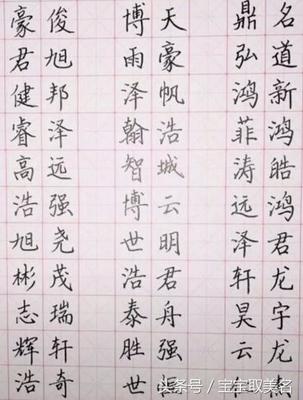 豪俊 博天 鼎名
君旭 雨豪 弘道
健邦 泽帆 鸿新
睿泽 翰浩 菲鸿
高远 智城 涛皓
浩强 博云 远鸿
旭尧 世明 泽君
彬茂 浩君 轩龙
志瑞 泰舟 昊宇
辉轩 胜强 云龙
浩奇 世
头条号/宝宝取美名